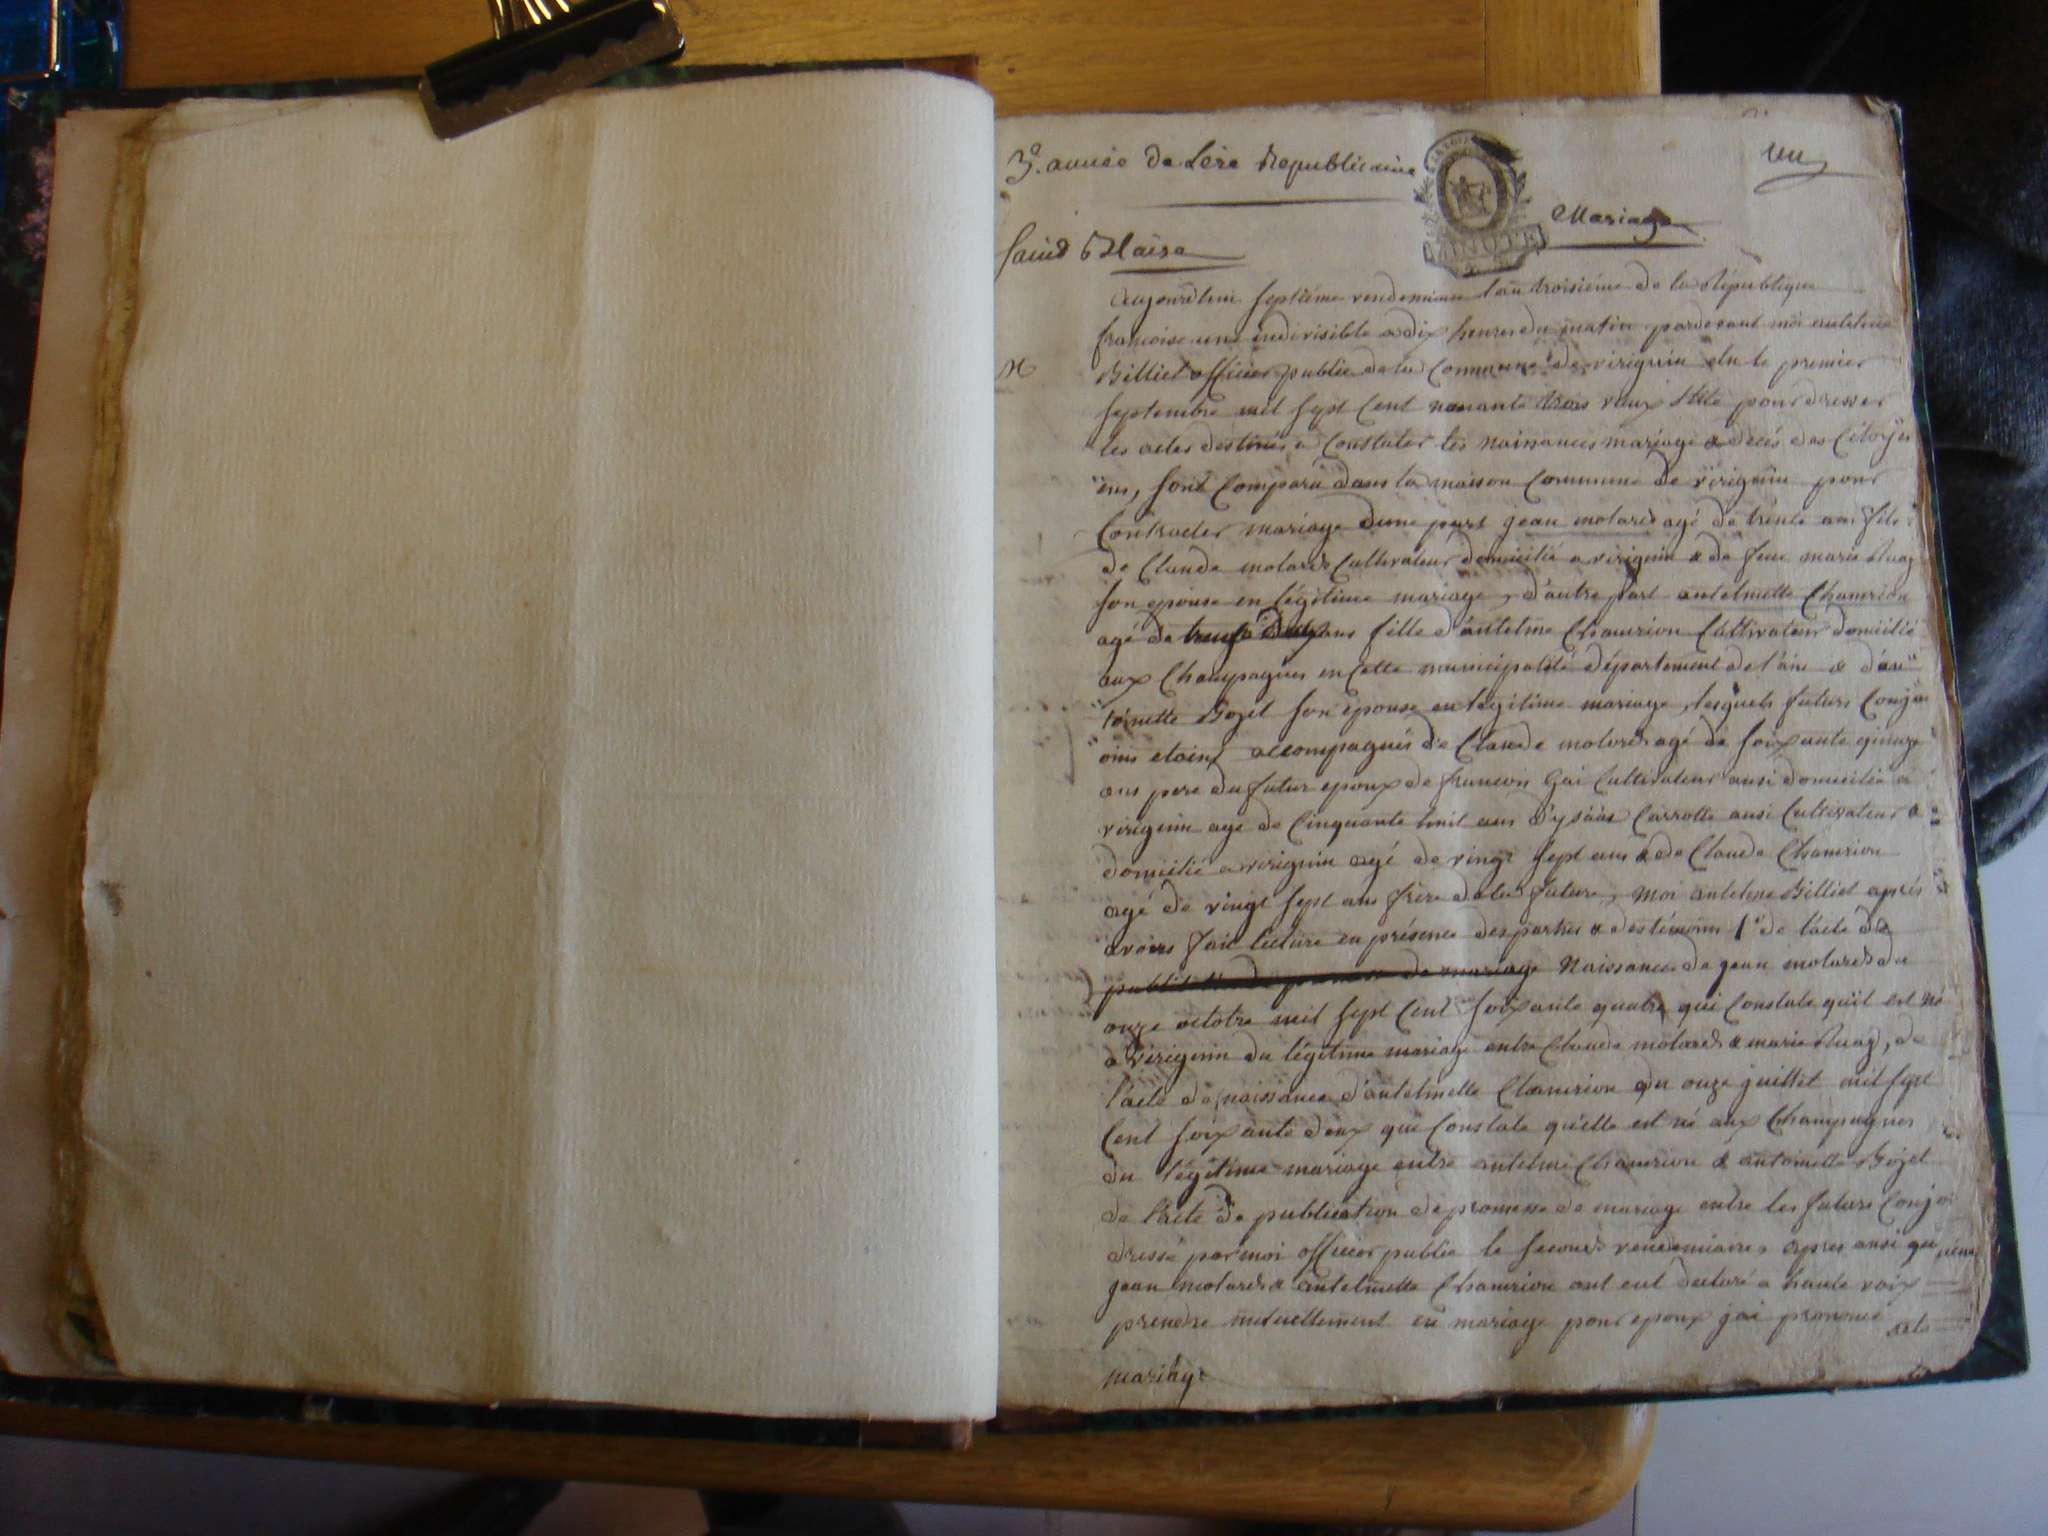 3.e année de Lere Republicaine
un
Mariage
Saind Blaise
MINUTE
Aujourdhui septième vendemiaire l'an troisième de la République
françoise une indivisible a dix heures du matin pardevant moi antelme
Billiet officier public de la Commune de virignin elu le premier
septembre mil sept Cent nonante trois vieux stile pour dresser
les actes destinés a Constater les naissances mariage & décés des Citoy
ens, sont Comparu dans la maison Commune de virignin pour
Contracter mariage dune part jean molard agé de trente ans fils
de Claude molard Cultivateur domicilié a virignin & de feue marie
son epouse en légitime mariage, d'autre part antelmette Chamrion
agé de trente deux ans fille d'antelme Chamrion Cultivateur domicilié
aux Champagnes en Cette municipalité département de l'ain & d'an
toinette Bozet son epouse en legitime mariage, lesquels futurs Conjo
oins etoint accompagnés de Claude molard agé de soixante quinze
ans pere du futur epoux de francois Gai Cultivateur ausi domicilié a
virignin age de Cinquante huit ans d'ysaac Carrotte ausi Cultivateur &
domicilié a virignin agé de vingt sept ans & de Claude Chamrion
agé de vingt sept ans frère de la future, moi antelme Billiet aprés
avoirs fait lecture en présence des parties & des témoins 1° de l'acte de
publication de promesse de mariage Naissance de jean molard du
onze octobre mil sept Cent soixante quatre qui Constate quil est né
a virignin du légitime mariage entre Claude molard & marie, de
l'acte de naissance d'antelmette Chamrion du onze juillet mil sept
Cent soixante deux qui Constate quelle est né aux Champagnes
du légitime mariage entre antelme Chamrion & antoinette Bozet
de l'acte de publication de promesse de mariage entre les futurs Conjo
dressé par moi officier public le second vendemiaire, apres ausi que
jean molard & antelmette Chamrion ont eut declaré a haute voix
prendre mutuellement en mariage pour epoux jai prononcé
mariage